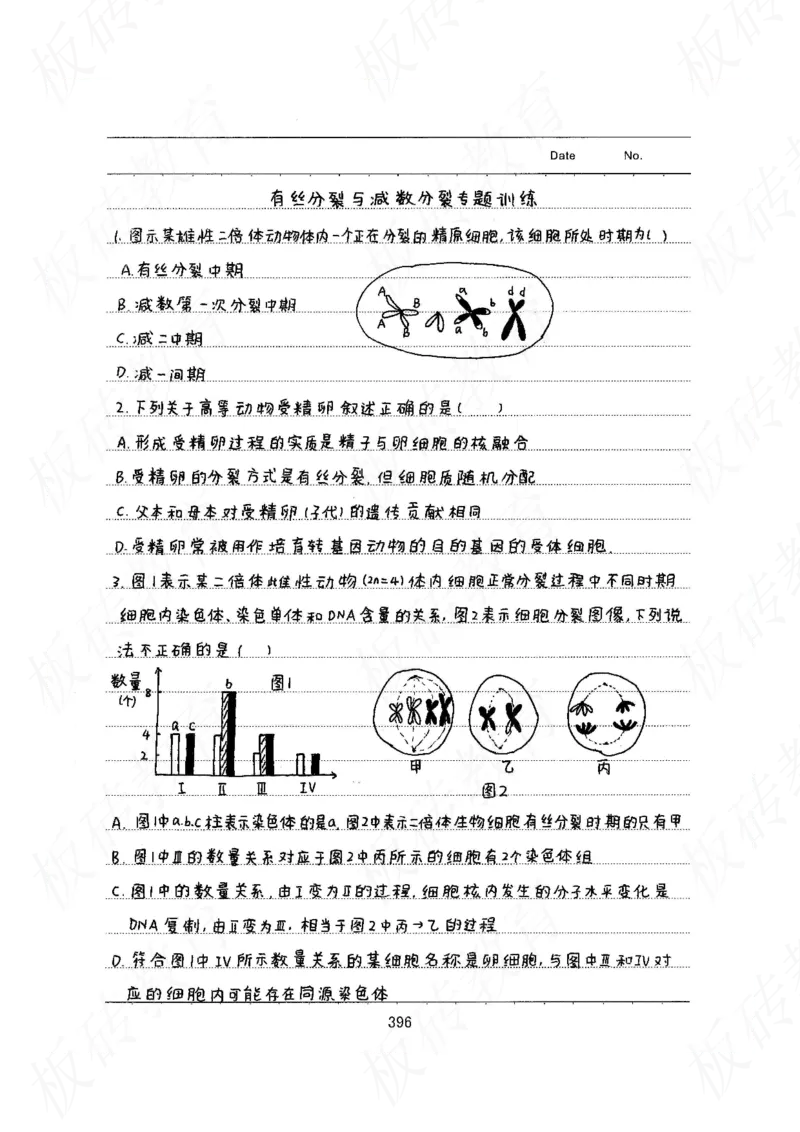 Date No.
有丝分裂与减数分裂专题训练
1.图示某雄性二倍体动物体内一个正在分裂的精原细胞,该细胞所处时期为( )
A.有丝分裂中期
B.减数第一次分裂中期
C.减二中期
D.减一间期
A B A B a b a b d d
2.下列关于高等动物受精卵叙述正确的是( )
A.形成受精卵过程的实质是精子与卵细胞的核融合
B.受精卵的分裂方式是有丝分裂,但细胞质随机分配
C.父本和母本对受精卵(子代)的遗传贡献相同
D.受精卵常被用作培育转基因动物的目的基因的受体细胞.
3.图1表示某二倍体雌性动物(2n=4)体内细胞正常分裂过程中不同时期
细胞内染色体、染色单体和DNA含量的关系,图2表示细胞分裂图像,下列说
法不正确的是( )
数量
(个)
8
4
2
a c b
图1
I II III IV
甲 乙 丙
图2
A.图1中a.b.c柱表示染色体的是a,图2中表示二倍体生物细胞有丝分裂时期的只有甲
B.图1中Ⅲ的数量关系对应于图2中丙所示的细胞有2个染色体组
C.图1中的数量关系,由I变为Ⅱ的过程,细胞核内发生的分子水平变化是
DNA复制,由Ⅱ变为Ⅲ,相当于图2中丙→乙的过程
D.符合图1中IV所示数量关系的某细胞名称是卵细胞,与图中Ⅲ和IV对
应的细胞内可能存在同源染色体
396
板砖教育